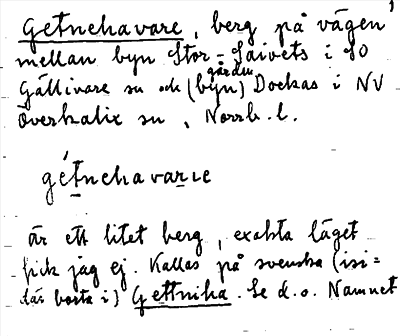 Getnehavare, berg på vägen
mellan byn Stor-Saivets i SO
gården
Gällivare sn och (byn) Dockas i NV
Överkalix sn, Norrb. l.
gétnehavarıe
är ett litet berg, exakta läget
fick jag ej. Kallas på svenska (isi=
bort i) Gettnika. Se d.o. Namnet